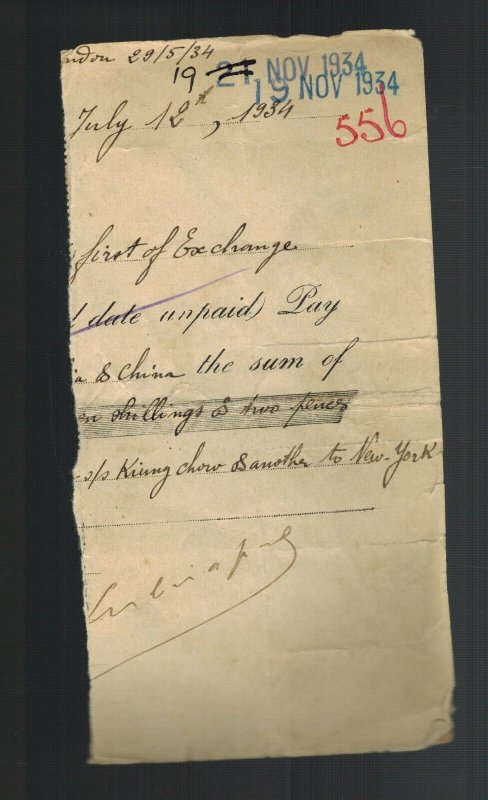 ndon 29/5/34
19 21 NOV 1934
19 NOV 1934
July 12th, 1934
556
first of Exchange
date unpaid) Pay
ia & China the sum of
en shillings & two pences
s/s Kiung chow & another to New-York